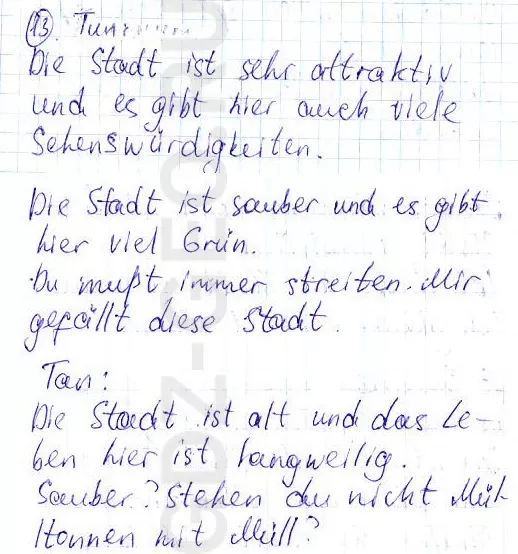 13. Tun
Die Stadt ist sehr attraktiv
und es gibt hier auch viele
Sehenswürdigkeiten.
Die Stadt ist sauber und es gibt
hier viel Grün.
Du mußt immer streiten. Mir
gefällt diese Stadt.
Tan:
Die Stadt ist alt und das Le-
ben hier ist langweilig.
Sauber? Stehen du nicht Mül-
ltonnen mit Müll?
GDZ-GEO.RU